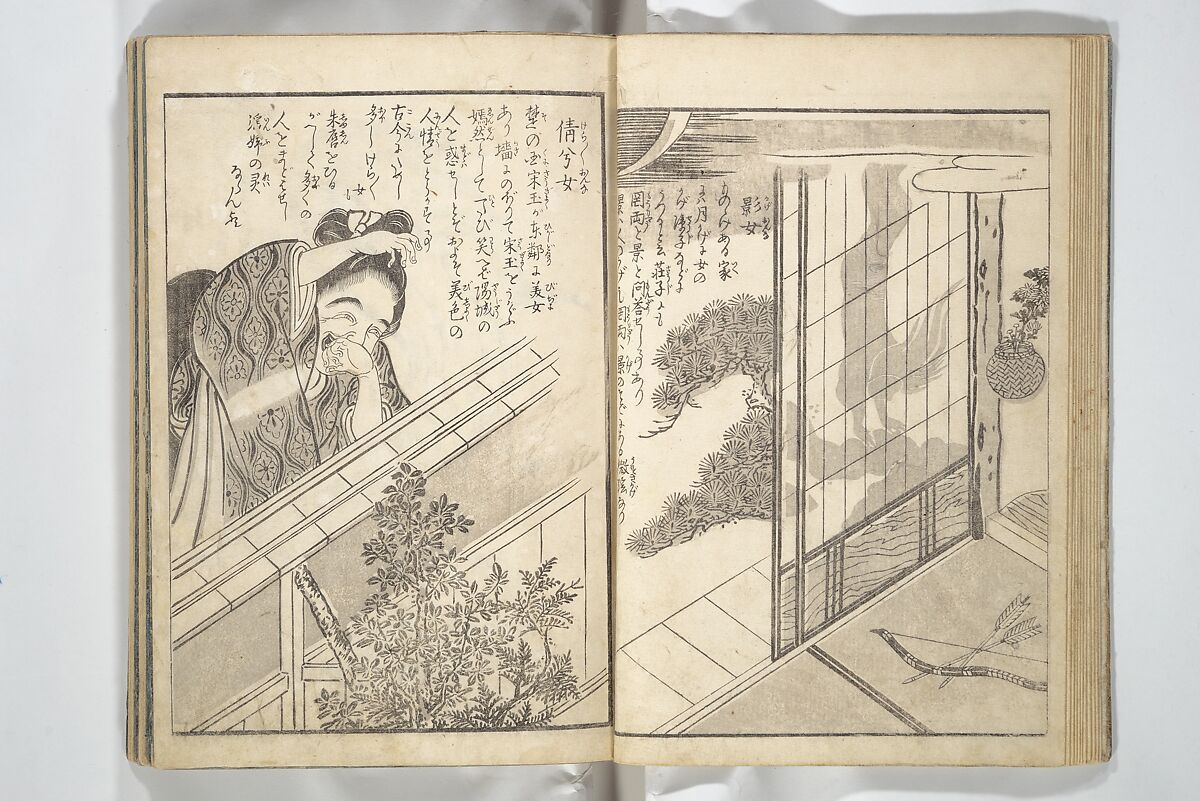 景女
ものゝけある家
には月かげに女の
かげ障子などに
うつると云荘子にも
罔両と景と問答せし事あり
景は人のかげ也罔両は景のそばにある微陰なり
倩兮女
楚の国宋玉が東隣に美女
あり墻にのぼりて宋玉をうかゞふ
嫣然として一たび笑へば陽城の
人を惑せしとぞおよそ美色の
人情をとらかす事
古今にためし
多しけら〱女も
朱唇をひる
がへして多くの
人をまどはせし
淫婦の霊
ならんか